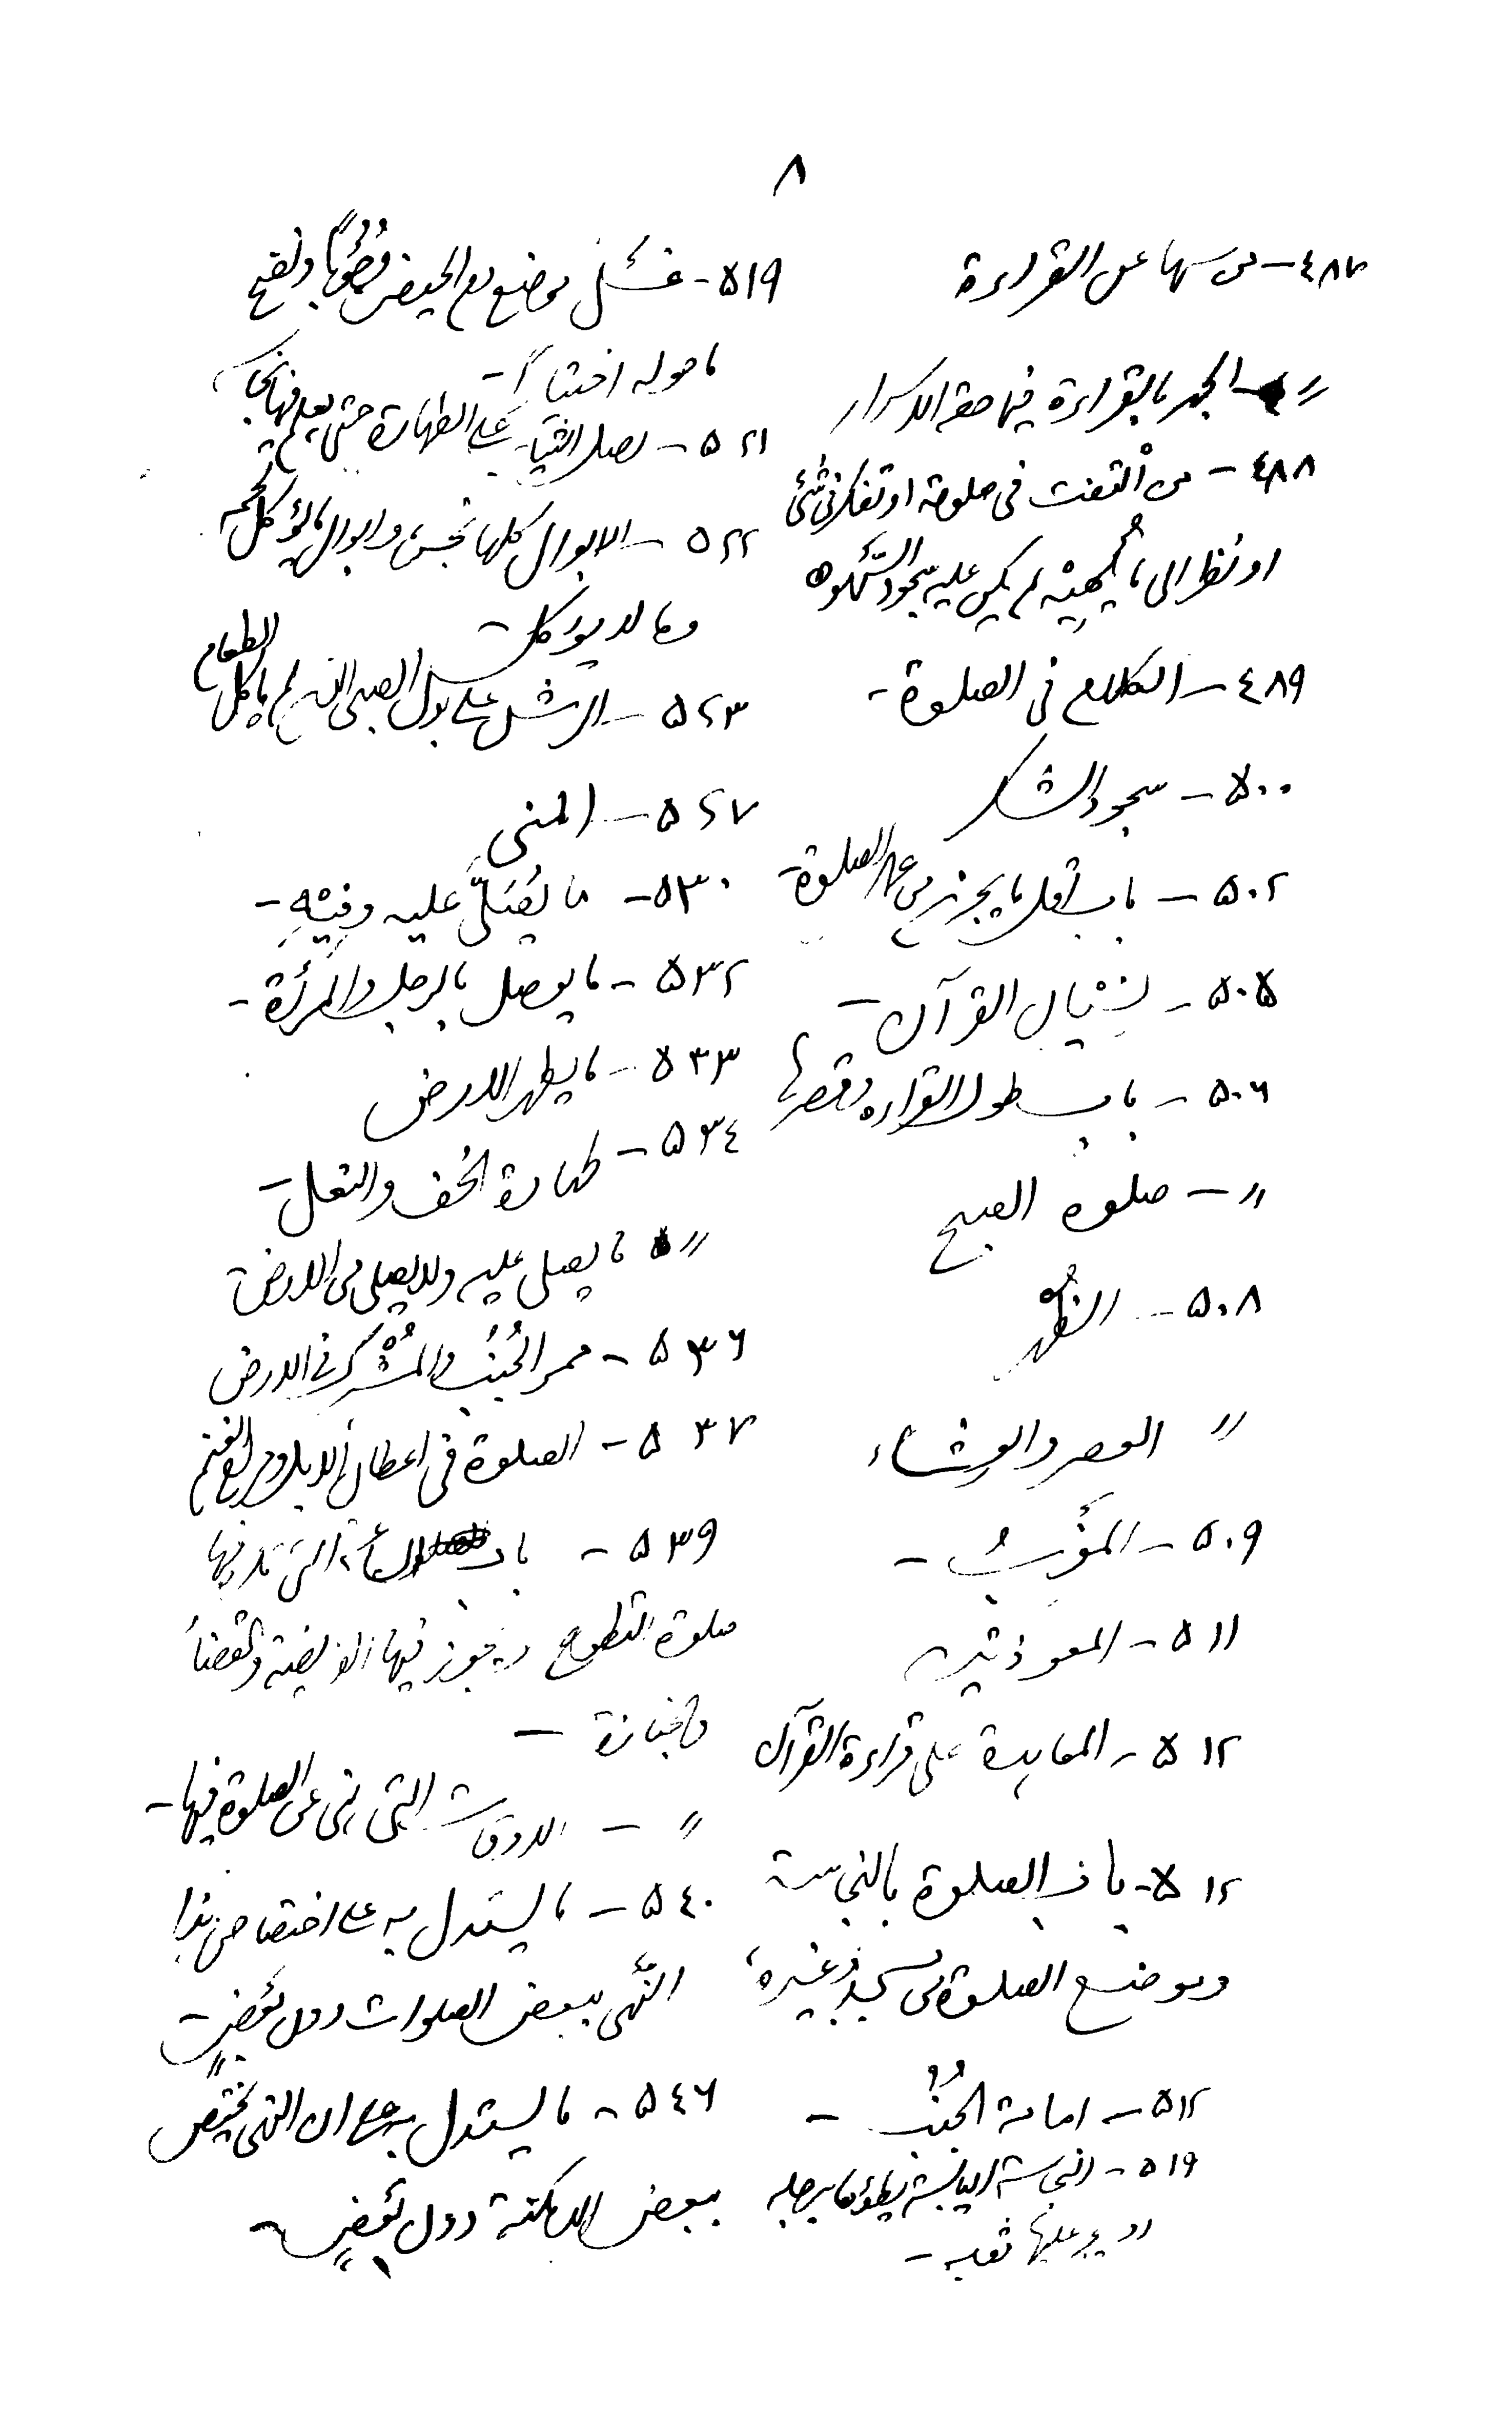 ٨
٤٨٧ - من سها عن القراءة
〃 - الجهر بالقراءة فيما حقه الاسرار
٤٨٨ - من ألتفت فى صلوته او تفكر فى شئ
او نظر الى ما يُلهِيْه لم يكن عليه سجود السَّهو
٤٨٩ - الكلام فى الصلوة -
٥٠٠ - سجود الشكر
٥٠٢ - باب اقل ما يجزئ من عمل الصلوة -
٥٠٥ - تنزيل القرآن -
٥٠٦ - باب طول القراءه وقصرها
〃 - صلوه الصبح
٥٠٨ - الظُهر
〃 العصر والعِشاء
٥٠٩ - المَغرِبُ -
٥١١ - المعوذتين
٥١٢ - المعاهدة على قراءة القرآن
٥١٢ - باب الصلوة بالنجاسة
وموضع الصلوة من مسجد وغيره
٥١٢ - امامة الجُنُب -
٥١٩ - النجاسة اليابسة يطؤها برجله
او يجر عليها ثوبه -
٥١٩ - غسل موضع دم الحيض وضُوءًا ونضح
ما حوله اختيا -
٥٢١ - اصل الثياب على الطهارة حتى يعلم فيها نجاسة
٥٢٢ - الابوال كلها نجس وابوال ما يؤكل لحمه
وما لا يوءكل -
٥٢٣ - الرش على بول الصبى الذى لم ياكل الطعام
٥٢٧ - المنى
٥٣٠ - ما يُصَلَّى عليه وفِيْهِ -
٥٣٢ - ما يوصل بالرجل والمرأة -
٥٣٣ - ما يطهر الارض
٥٣٤ - طهارة الخُف والنعل -
〃 ما يصلى عليه ولا يصلى من الارض
٥٣٦ - ممر الجُنُب والمُشْرك فى الارض
٥٣٧ - الصلوة فى اعطان الابل ومراح الغنم
٥٣٩ - باب التى تكره فيها
صلوة التطوع ويجوز فيها الفريضة والقضاء
والجنازة -
〃 - الاوقات التى نهى عن الصلوة فيها -
٥٤٠ - ما يستدل به على اختصاص هذا
النّهى ببعض الصلوات دون بَعضٍ -
٥٤٦ - ما يستدل به على ان النهى يختص
ببعض الامكنة دون بَعضٍ -